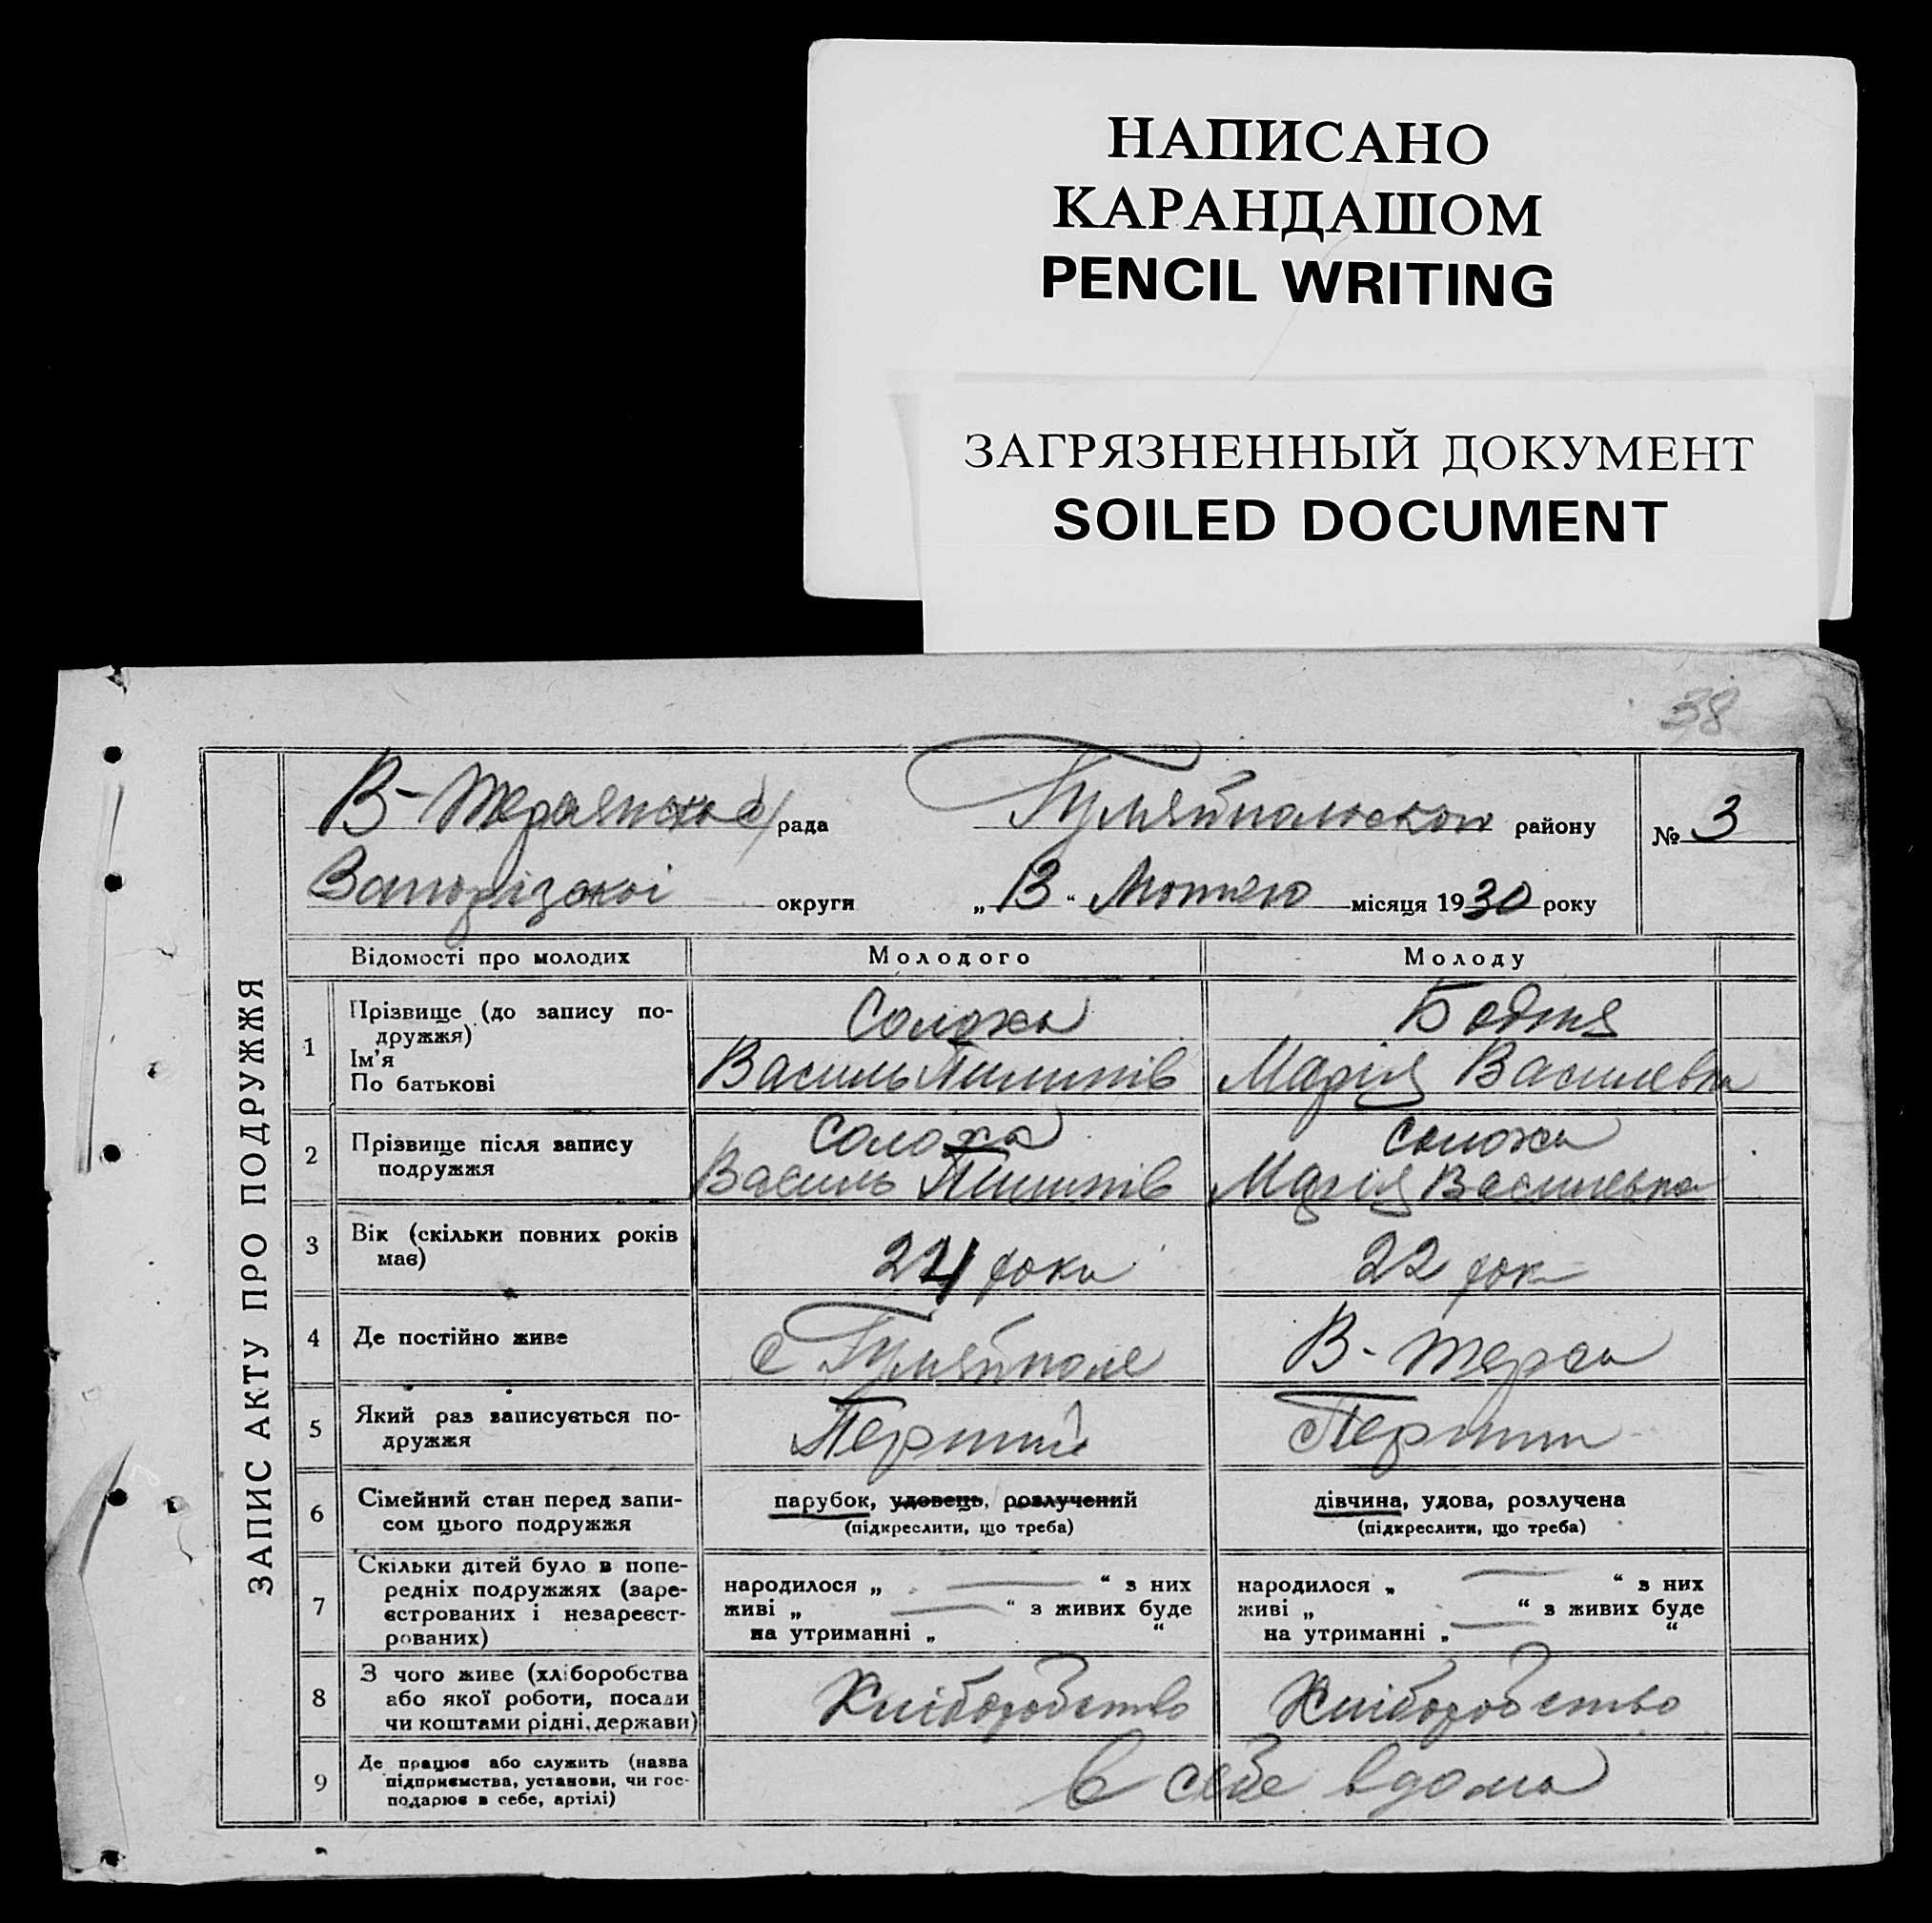 НАПИСАНО
КАРАНДАШОМ
PENCIL WRITING
ЗАГРЯЗНЕННЫЙ ДОКУМЕНТ
SOILED DOCUMENT
38
ЗАПИС АКТУ ПРО ПОДРУЖЖЯ
В-Терсянська с/рада Гуляйпольского району № 3
Запорізскої округи „13“ Лютого місяця 1930 року
Відомості про молодих Молодого Молоду
1 Прізвище (до запису подружжя) Солоха Бодня
Ім'я
По батькові Василь Пилипів Марія Василевна
2 Прізвище після запису подружжя Солоха Солоха
Василь Пилипів Марія Василевна
3 Вік (скільки повних років має) 24 роки 22 рок
4 Де постійно живе с Гуляйполе В-Терса
5 Який раз записується подружжя Перший Перши
6 Сімейний стан перед записом цього подружжя парубок, удовець, розлучений дівчина, удова, розлучена
(підкреслити, що треба) (підкреслити, що треба)
7 Скільки дітей було в попередніх подружжях (зареєстрованих і незареєстрованих)
народилося „ — “ з них народилося „ — “ з них
живі „ — “ з живих буде живі „ — “ з живих буде
на утриманні „ “ на утриманні „ “
8 З чого живе (хліборобства або якої роботи, посади чи коштами рідні, держави) Хліборобство Хліборобство
9 Де працює або служить (назва підприємства, установи, чи господарює в себе, артілі) в себе вдома